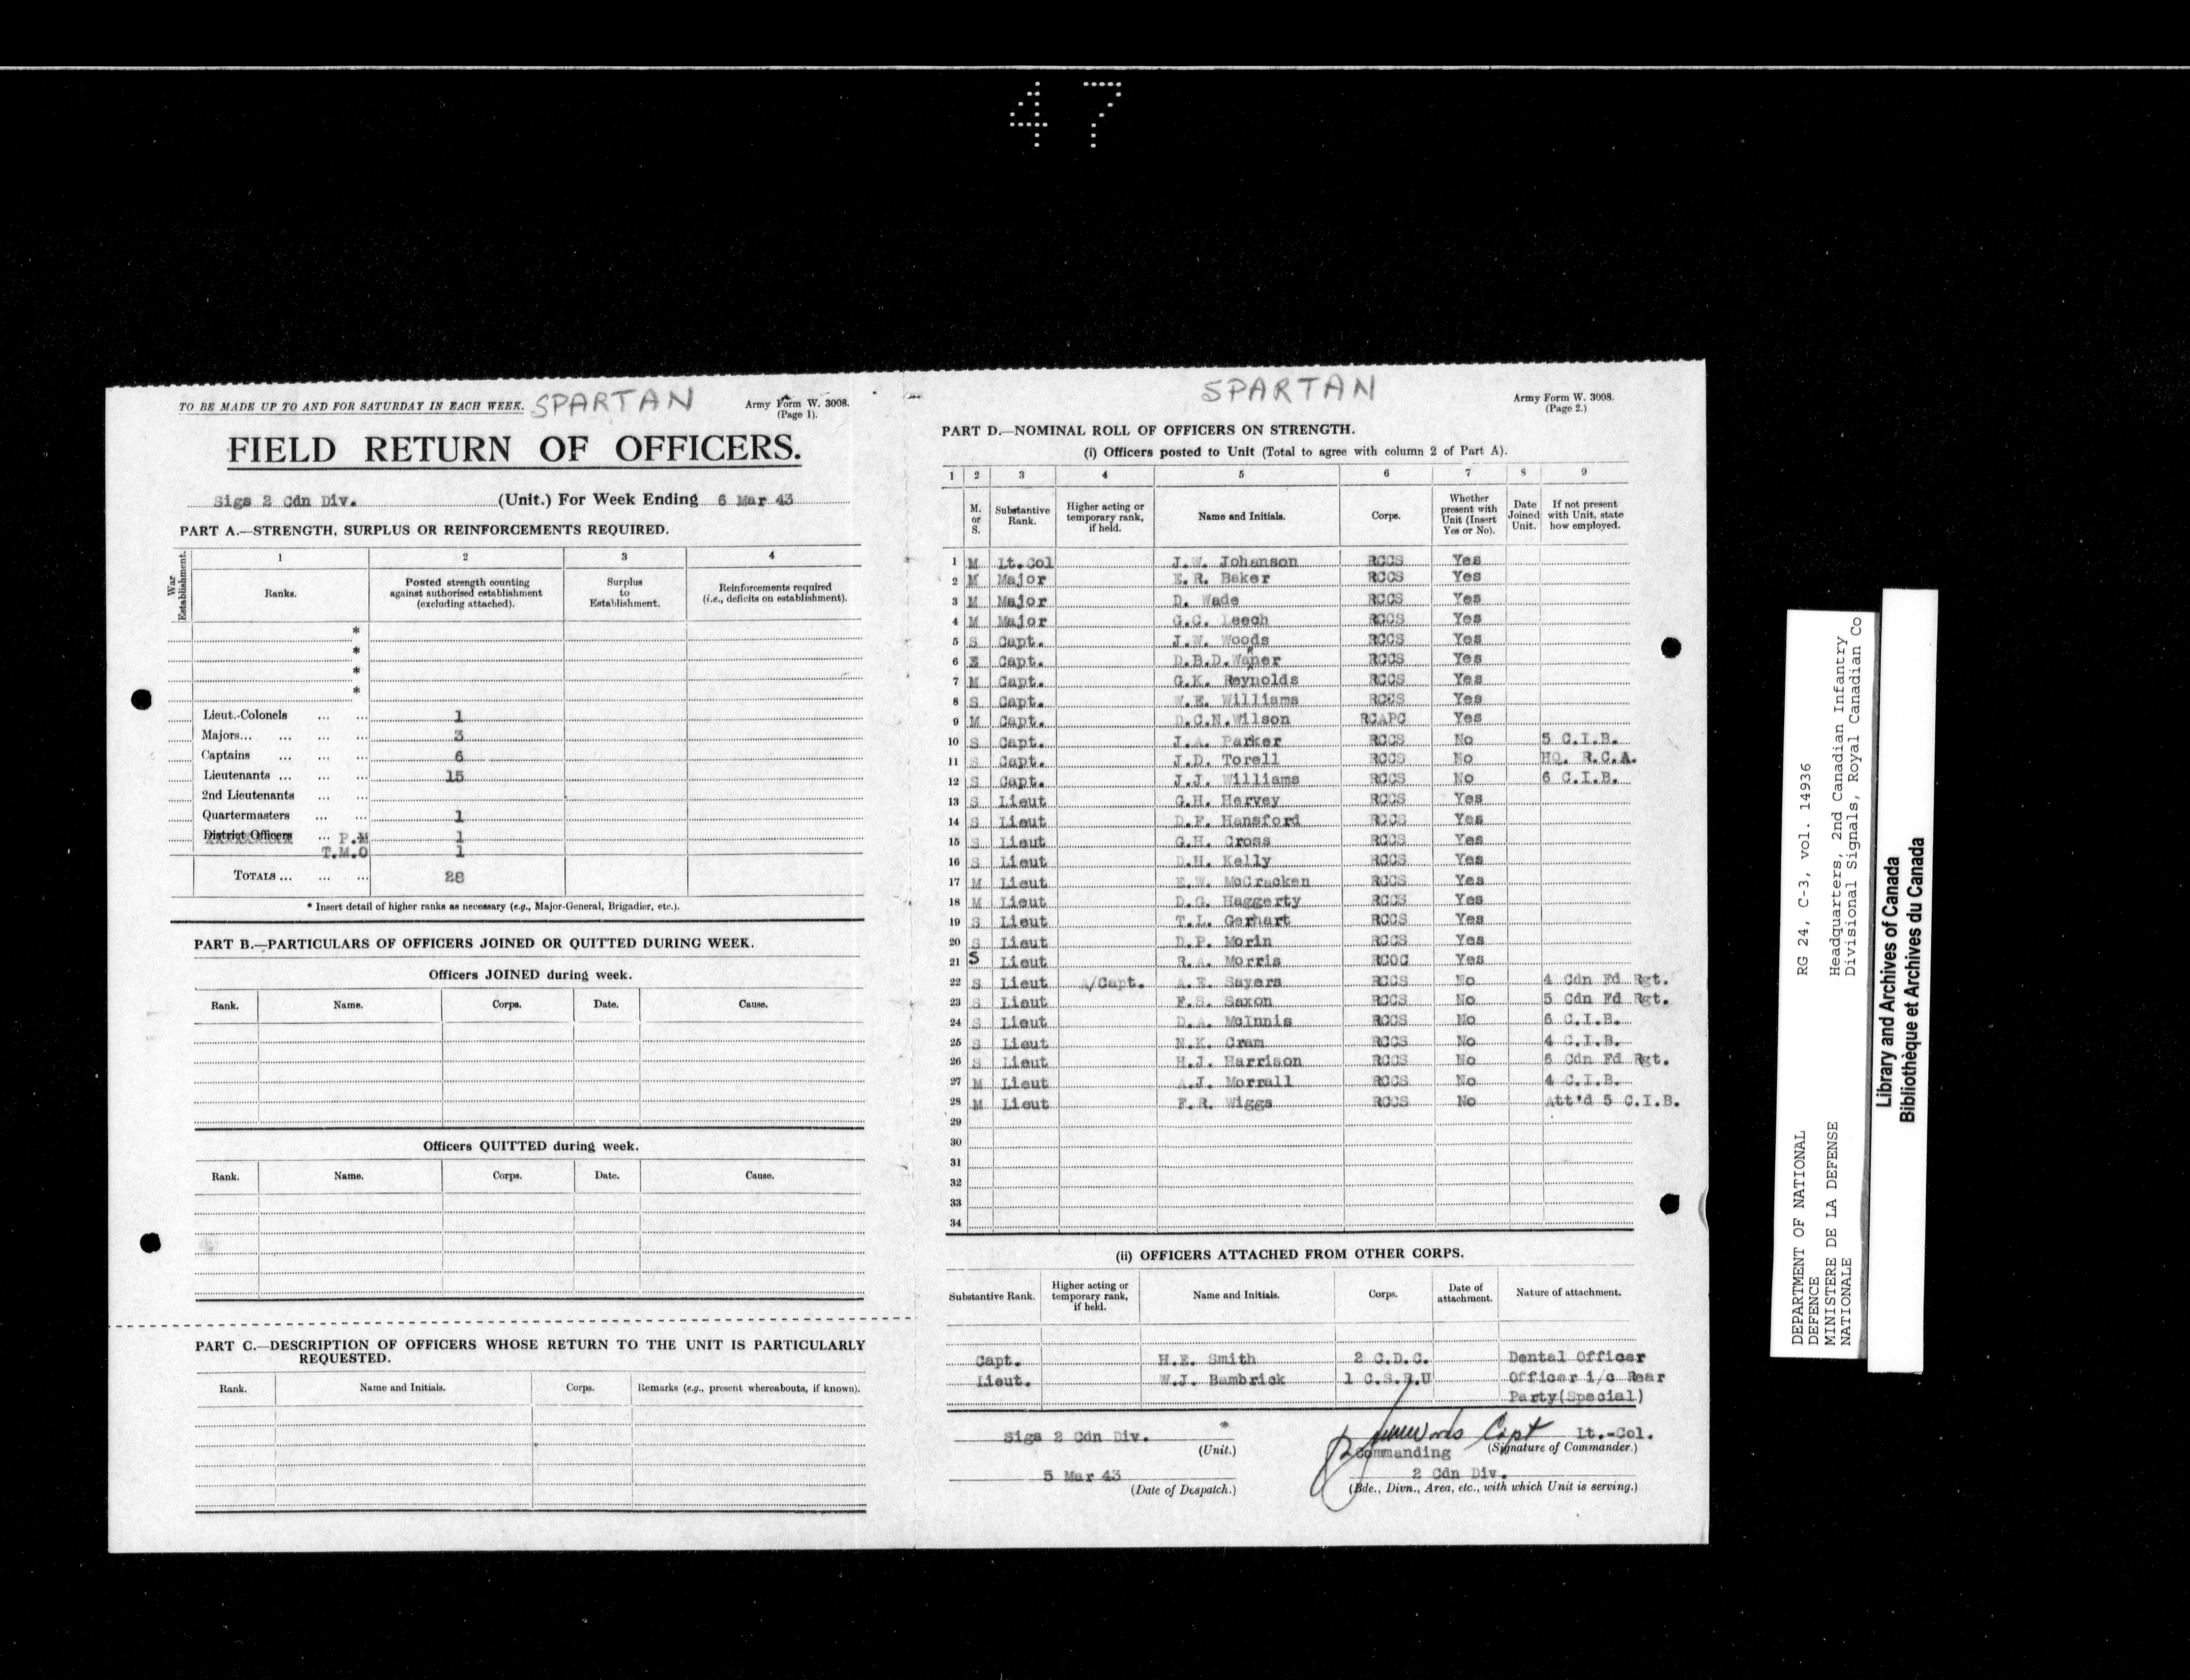 47
TO BE MADE UP TO AND FOR SATURDAY IN EACH WEEK. SPARTAN Army Form W. 3008.
(Page 1).
FIELD RETURN OF OFFICERS.
Sigs 2 Cdn Div. (Unit.) For Week Ending 6 Mar 43
PART A.—STRENGTH, SURPLUS OR REINFORCEMENTS REQUIRED.
War Establishment.
1 2 3 4
Ranks. Posted strength counting against authorised establishment (excluding attached). Surplus to Establishment. Reinforcements required (i.e., deficits on establishment).
*
*
*
*
Lieut.-Colonels ... ... 1
Majors... ... ... ... 3
Captains ... ... ... 6
Lieutenants ... ... ... 15
2nd Lieutenants ... ...
Quartermasters ... ... 1
District Officers ... P.M 1
T.M.O 1
TOTALS ... ... ... 28
* Insert detail of higher ranks as necessary (e.g., Major-General, Brigadier, etc.).
PART B.—PARTICULARS OF OFFICERS JOINED OR QUITTED DURING WEEK.
Officers JOINED during week.
Rank. Name. Corps. Date. Cause.
Officers QUITTED during week.
Rank. Name. Corps. Date. Cause.
PART C.—DESCRIPTION OF OFFICERS WHOSE RETURN TO THE UNIT IS PARTICULARLY
REQUESTED.
Rank. Name and Initials. Corps. Remarks (e.g., present whereabouts, if known).
SPARTAN Army Form W. 3008.
(Page 2.)
PART D.—NOMINAL ROLL OF OFFICERS ON STRENGTH.
(i) Officers posted to Unit (Total to agree with column 2 of Part A).
1 2 3 4 5 6 7 8 9
M. or S. Substantive Rank. Higher acting or temporary rank, if held. Name and Initials. Corps. Whether present with Unit (Insert Yes or No). Date Joined Unit. If not present with Unit, state how employed.
1 M Lt.Col J.W. Johanson RCCS Yes
2 M Major E.R. Baker RCCS Yes
3 M Major D. Wade RCCS Yes
4 M Major G.C. Leech RCCS Yes
5 S Capt. J.W. Woods RCCS Yes
6 Capt. D.B.D. RCCS Yes
7 M Capt. G.K. Reynolds RCCS Yes
8 S Capt. W.E. Williams RCCS Yes
9 M Capt. D.C.N.Wilson RCAPC Yes
10 S Capt. J.A. Parker RCCS No 5 C.I.B.
11 S Capt. J.D. Torell RCCS No HQ. R.C.A.
12 S Capt. J.J. Williams RCCS No 6 C.I.B.
13 S Lieut G.H. Hervey RCCS Yes
14 S Lieut D.F. Hansford RCCS Yes
15 S Lieut G.H. Cross RCCS Yes
16 S Lieut D.H. Kelly RCCS Yes
17 M Lieut E.W. McCracken RCCS Yes
18 M Lieut D.G. Haggerty RCCS Yes
19 S Lieut T.L. Gerhart RCCS Yes
20 S Lieut D.P. Morin RCCS Yes
21 S Lieut R.A. Morris RCOC Yes
22 S Lieut A/Capt. A.E. Sayers RCCS No 4 Cdn Fd Rgt.
23 S Lieut F.S. Saxon RCCS No 5 Cdn Fd Rgt.
24 S Lieut D.A. McInnis RCCS No 6 C.I.B.
25 S Lieut N.K. Cram RCCS No 4 C.I.B.
26 S Lieut H.J. Harrison RCCS No 6 Cdn Fd Rgt.
27 M Lieut A.J. Morrall RCCS No 4 C.I.B.
28 M Lieut F.R. Wiggs RCCS No Att'd 5 C.I.B.
29
30
31
32
33
34
(ii) OFFICERS ATTACHED FROM OTHER CORPS.
Substantive Rank. Higher acting or temporary rank, if held. Name and Initials. Corps. Date of attachment. Nature of attachment.
Capt. H.E. Smith 2 C.D.C. Dental Officer
Lieut. W.J. Bambrick 1 C.S.R.U Officer i/c Rear
Party(Special)
Sigs 2 Cdn Div. Capt Lt.-Col.
(Unit.) Commanding (Signature of Commander.)
5 Mar 43 2 Cdn Div.
(Date of Despatch.) (Bde., Divn., Area, etc., with which Unit is serving.)
DEPARTMENT OF NATIONAL RG 24, C-3, vol. 14936
DEFENCE
MINISTERE DE LA DEFENSE Headquarters, 2nd Canadian Infantry
NATIONALE Divisional Signals, Royal Canadian Co
Library and Archives of Canada
Bibliothèque et Archives du Canada